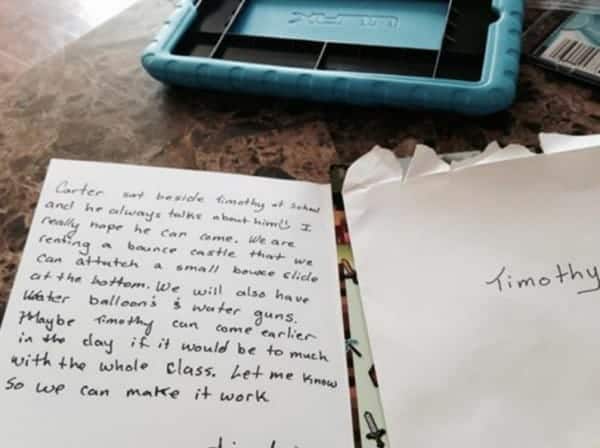 Carter sat beside Timothy at School
and he always talks about him! I
really hope he can come. We are
renting a bounce castle that we
can attatch a small bounce slide
at the bottom. We will also have
Water balloons & water guns.
Maybe Timothy can come earlier
in the day if it would be to much
with the whole class. Let me know
so we can make it work
Timothy